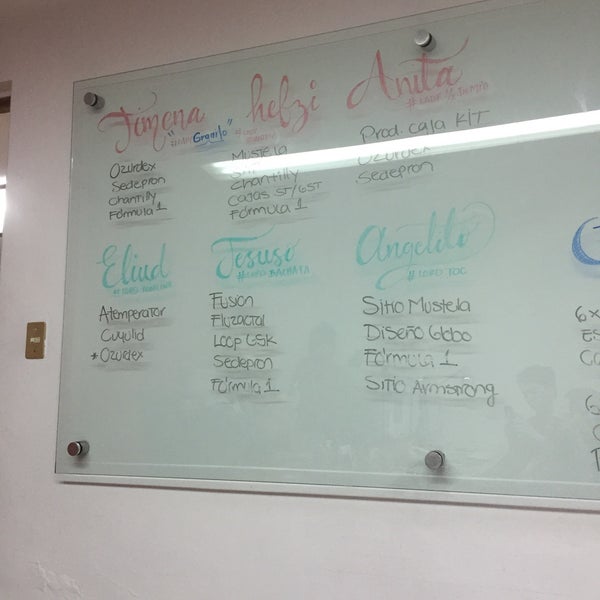 Jimena
"Granito"
Ozurdex
Sedepron
Chantilly
Fórmula 1
hefzi
Mustela
Chantilly
Cajas ST/GST
Fórmula 1
Anita
Prod. caja KIT
Ozurdex
Sedepron
Eliud
Atemperator
Cuyulid
* Ozurdex
Jesuso
#LORD BACHATA
Fusion
Fluzactal
Loop GSK
Sedepron
Fórmula 1
Angelito
#LORD TOC
Sitio Mustela
Diseño Globo
Fórmula 1
Sitio Armstrong